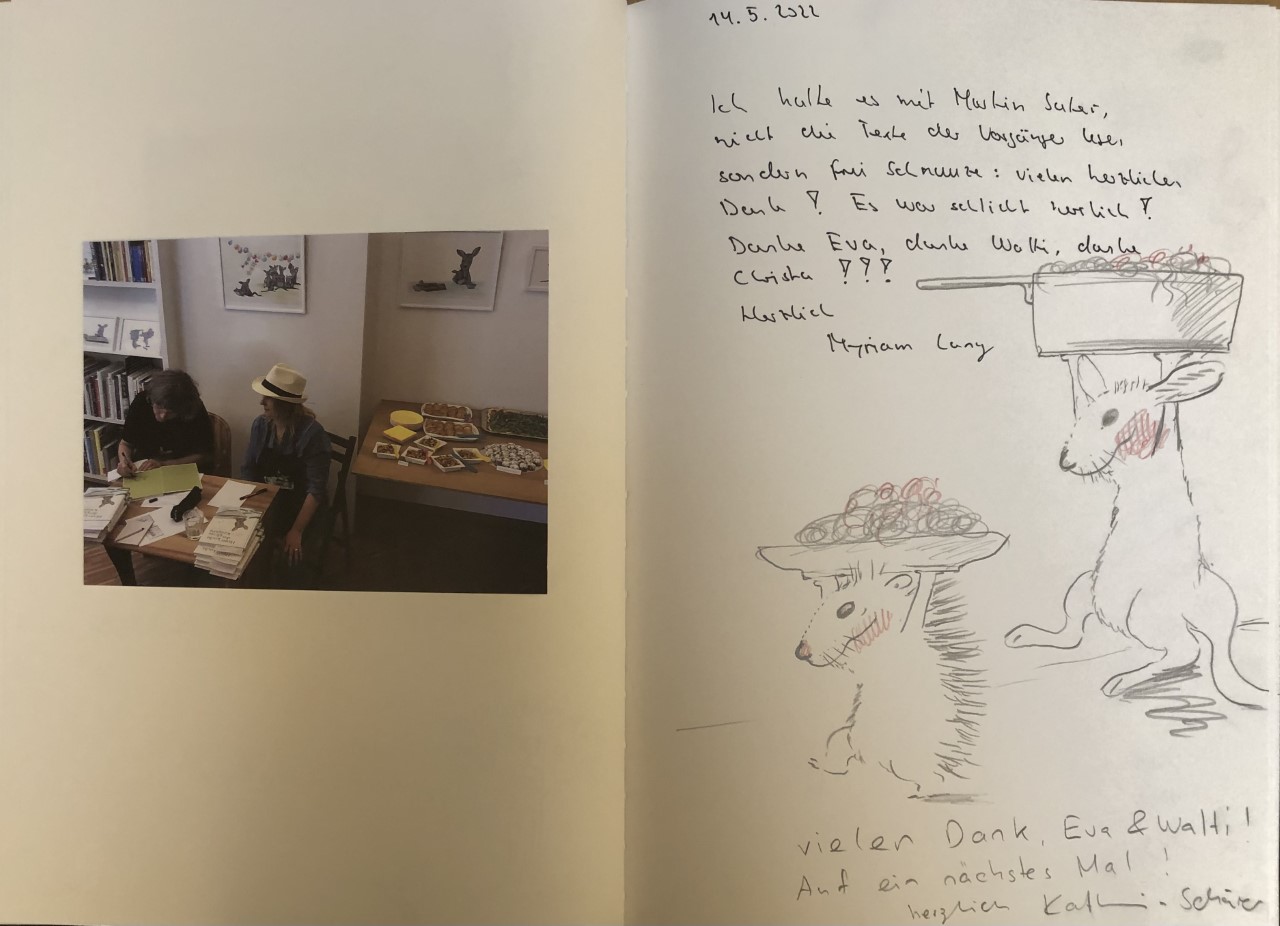 14.5.2022
Ich halte es mit Martin Suter,
nicht die Texte der Vorgänger lesen,
sondern frei Schnauze: vielen herzlichen
Dank! Es war schlicht herrlich!
Danke Eva, danke Walti, danke
Christa!!!
Herzlich
Myriam Lang
vielen Dank, Eva & Walti!
Auf ein nächstes Mal!
herzlich Kathrin Schärer